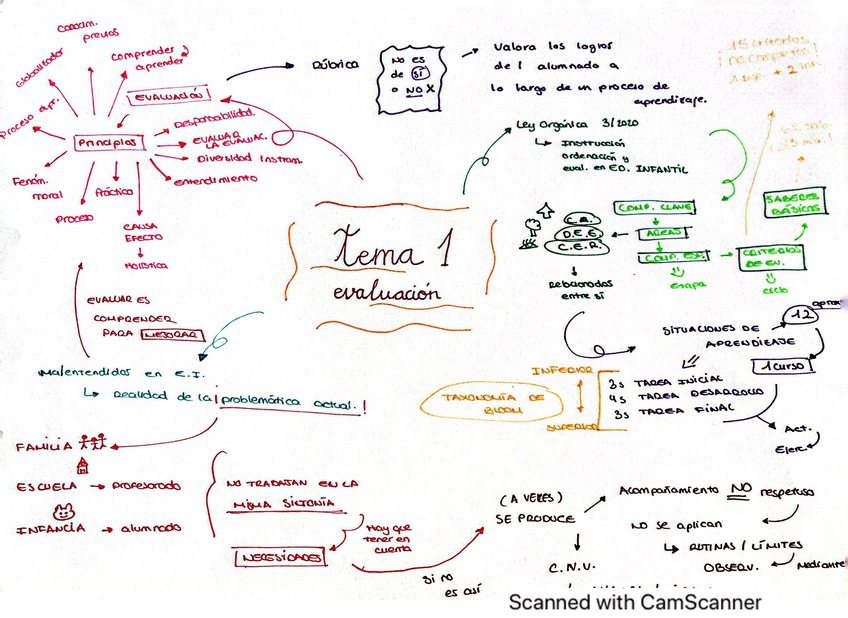 Conocim.
previos
Globalizador
comprender y
aprender
Proceso apr.
EVALUACIÓN
Principios
Responsabilidad.
EVALUAR
LA EVALUAC.
Diversidad instrum.
entendimiento
Fenóm.
moral
Práctica
Proceso
CAUSA
EFECTO
Holística
EVALUAR ES
COMPRENDER
PARA MEJORAR
Rúbrica
NO ES
de SÍ
o NO X
Valora los logros
del alumnado a
lo largo de un proceso de
aprendizaje.
15 criterios
¡no completos!
Ley Orgánica 3/2020
Instrucción
ordenación y
eval. en ED. INFANTIL
Tema 1
evaluación
C.A.
D.E.E.
C.E.R.
Relacionadas
entre sí
COMP. CLAVE
ÁREAS
COMP. ESP.
etapa
CRITERIOS
DE EV.
ciclo
SABERES
BÁSICOS
SITUACIONES DE
APRENDIZAJE
12
aprox.
1 curso
INFERIOR
TAXONOMÍA DE
BLOOM
SUPERIOR
3s TAREA INICIAL
4s TAREA DESARROLLO
3s TAREA FINAL
Act.
Ejerc.
Malentendidos en E.I.
Realidad de la problemática actual!
FAMILIA
ESCUELA → profesorado
INFANCIA → alumnado
NO TRABAJAN EN LA
MISMA SINTONÍA
NECESIDADES
Hay que
tener en
cuenta
Si no
es así
(A VECES)
SE PRODUCE
C.N.V.
Acompañamiento NO respetuoso
NO se aplican
RUTINAS / LÍMITES
OBSERV.
Mediante
Scanned with CamScanner